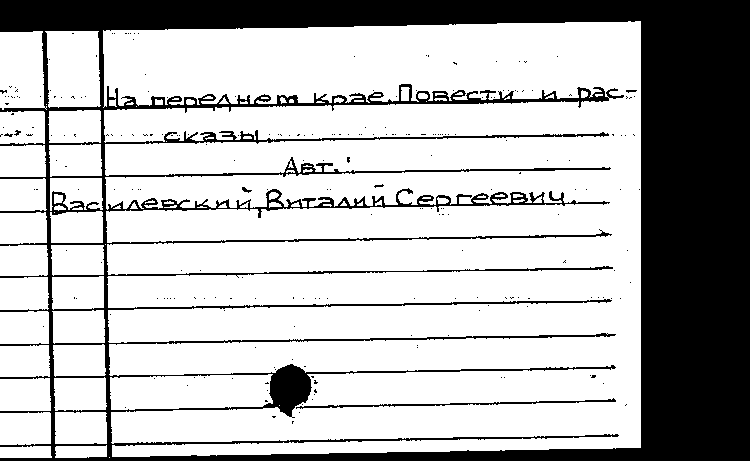 На переднем крае. Повести и рас-
сказы.
Авт.:
Василевский, Виталий Сергеевич.